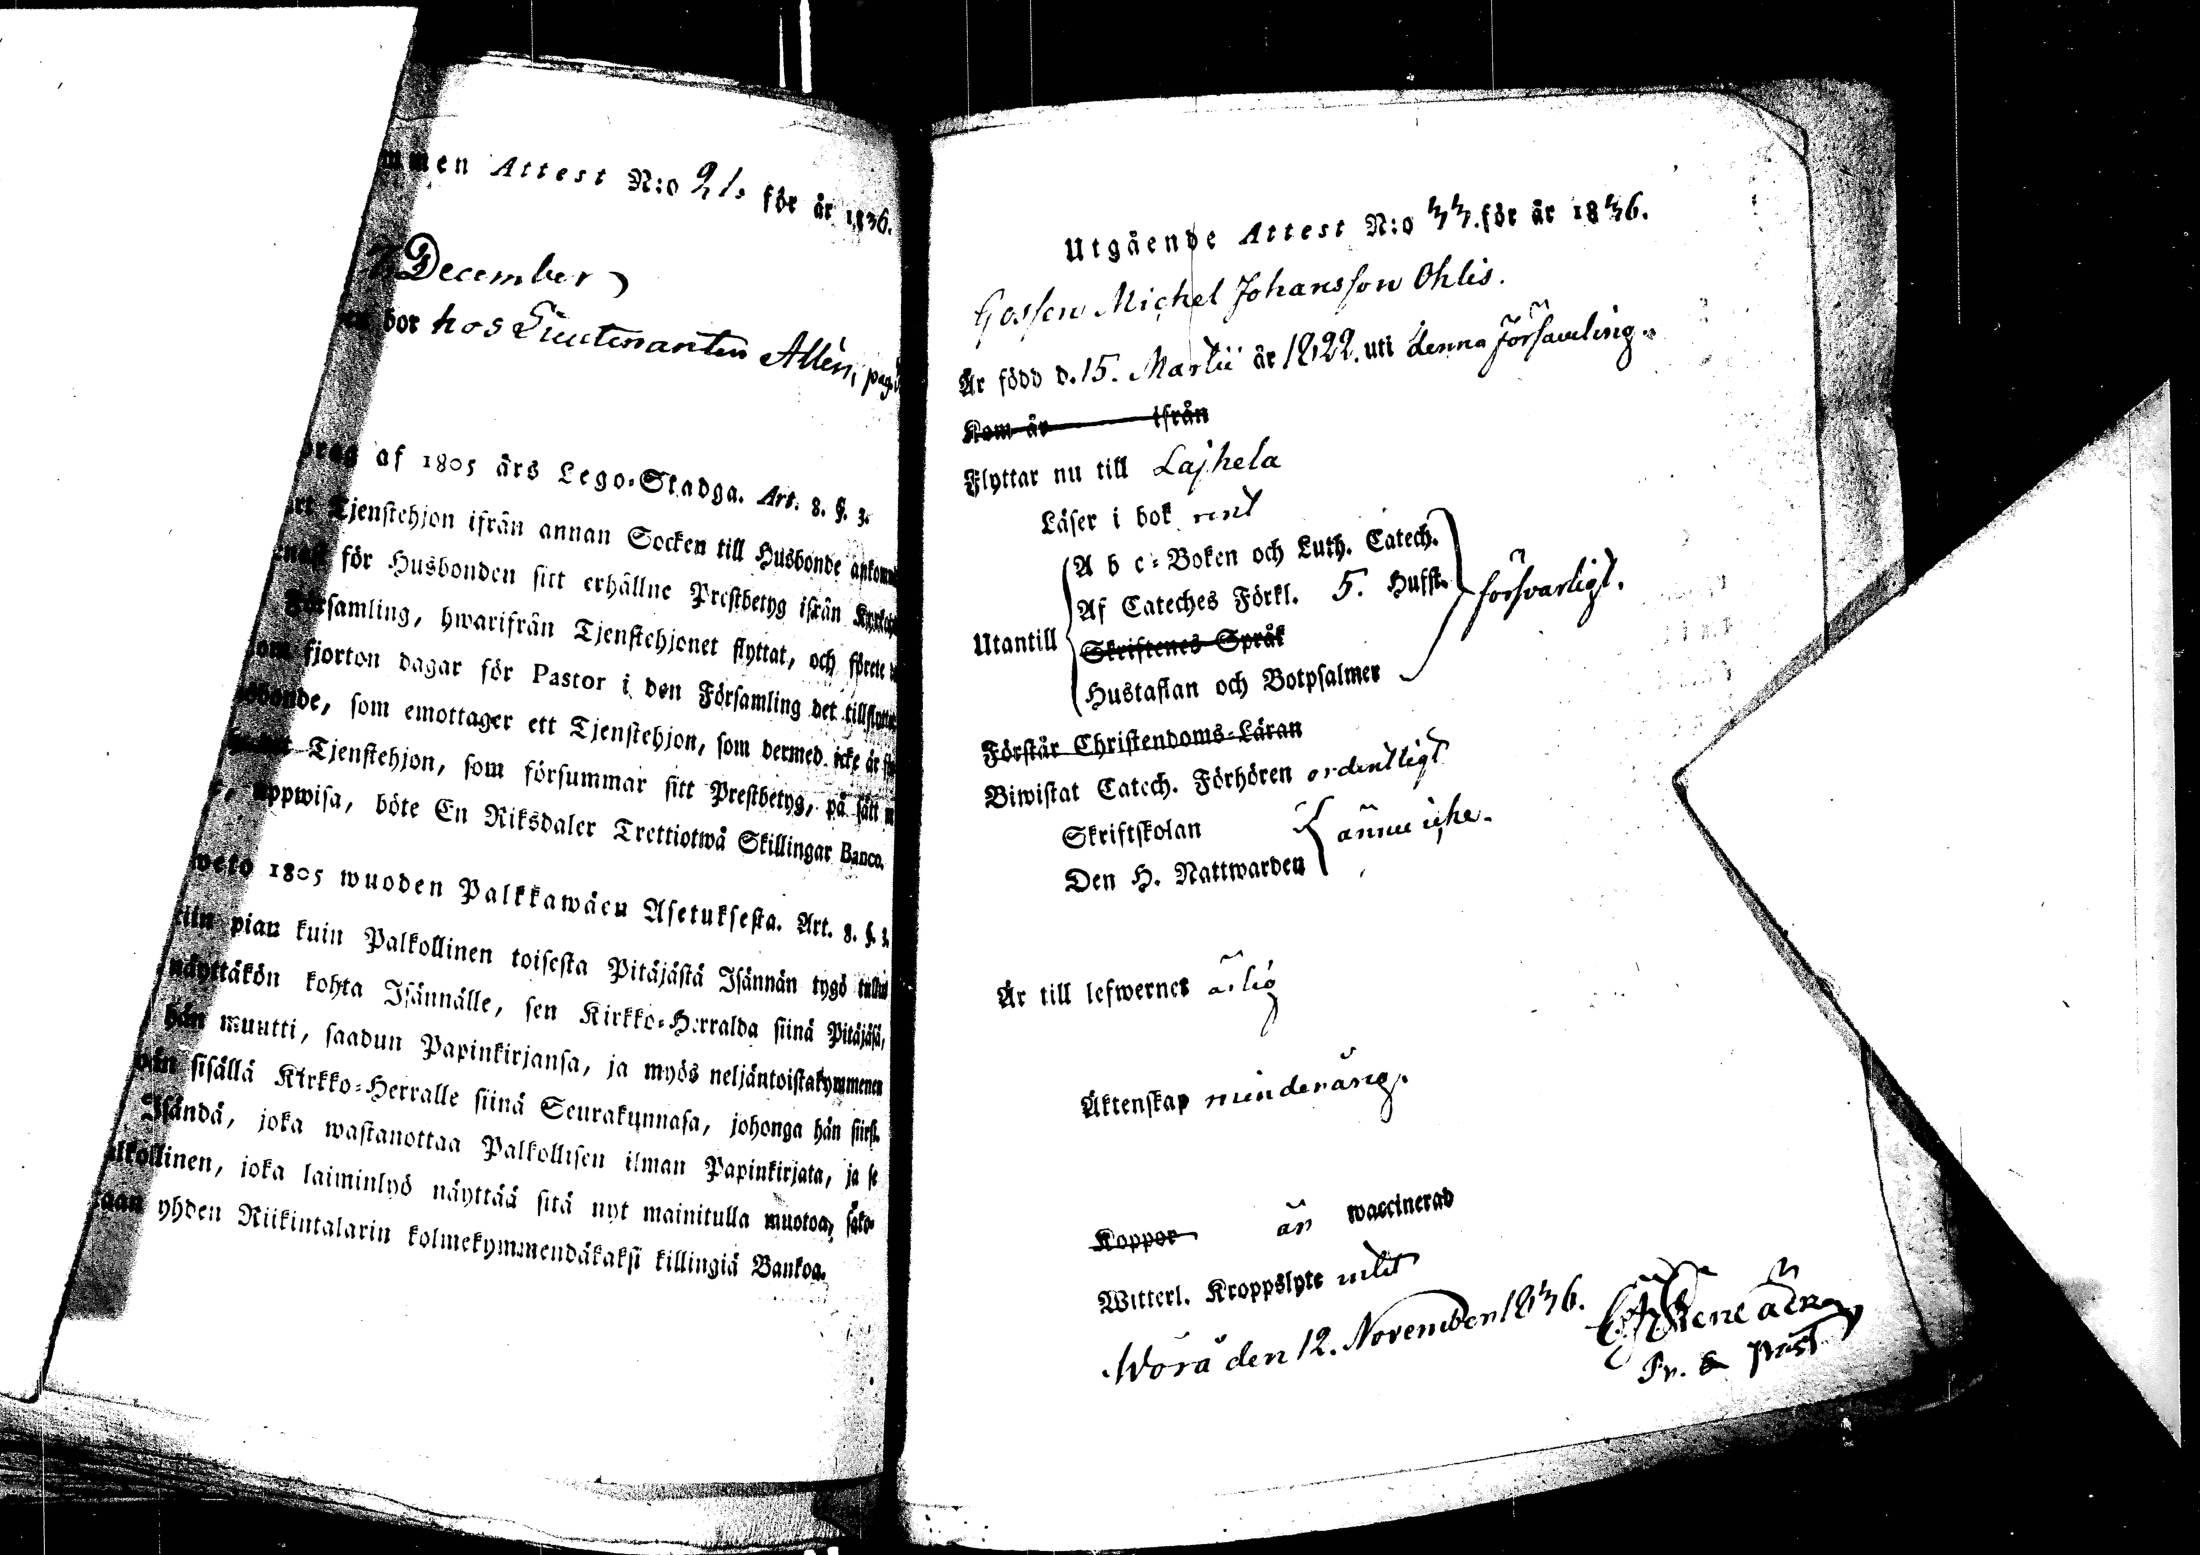 mmen Attest N:o 21. för år 1836.
December
bor hos Lieutenanten Allén, pag.
af 1805 års Lego-Stadga. Art. 8. §. 3.
Tjenstehjon ifrån annan Socken till Husbonde ankomm
för Husbonden sitt erhållne Prestbetyg ifrån Kyrko
Församling, hwarifrån Tjenstehjonet flyttat, och förete
om fjorton dagar för Pastor i den Församling det tillflyttat
usbonde, som emottager ett Tjenstehjon, som dermed icke är
Tjenstehjon, som försummar sitt Prestbetyg, på sätt
uppwisa, böte En Riksdaler Trettiotwå Skillingar Banco.
1805 wuoden Palkkawäen Asetuksesta. Art. 8. §. 3.
niin pian kuin Palkollinen toisesta Pitäjästä Isännän tygö tullut
näyttäkön kohta Isännälle, sen Kirkko-Herralda siinä Pitäjäsä,
hän muutti, saadun Papinkirjansa, ja myös neljäntoistakymmenen
wän sisällä Kirkko-Herralle siinä Seurakunnasa, johonga hän siirs.
Isändä, joka wastanottaa Palkollisen ilman Papinkirjata, ja se
alkollinen, joka laiminlyö näyttää sitä nyt mainitulla muotoa, sako-
aan yhden Riikintalarin kolmekymmendäkaksi killingiä Bankoa.
Utgående Attest N:o 33. för år 1836.
Gossen Michel Johansson Ohlis.
Är född d. 15. Martii år 1822. uti denna församling.
Kom år ifrån
Flyttar nu till Lajhela
Läser i bok rent
A b c-Boken och Luth. Catech.
Af Cateches Förkl. 5. Hufst.
Utantill försvarligt.
Skriftenes Språk
Hustaflan och Botpsalmer
Förstår Christendoms-Läran
Biwistat Catech. Förhören ordentligt
Skriftskolan
ännu icke.
Den H. Nattwarden
Är till lefwernet ärlig
Äktenskap minderårig.
Koppor är waccinerad
Witterl. Kroppslyte intet
Wörå den 12. November 1836.
Pr. & Past